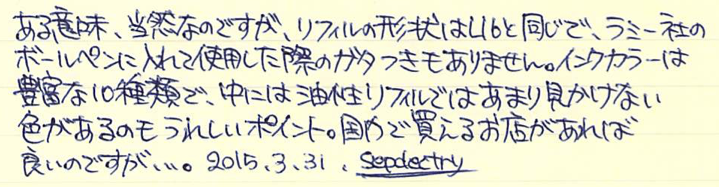 ある意味、当然なのですが、リフィルの形状はL16と同じで、ラミー社の
ボールペンに入れて使用した際のガタつきもありません。インクカラーは
豊富な10種類で、中には油性リフィルではあまり見かけない
色があるのもうれしいポイント。国内で買えるお店があれば
良いのですが、、、。2015.3.31.